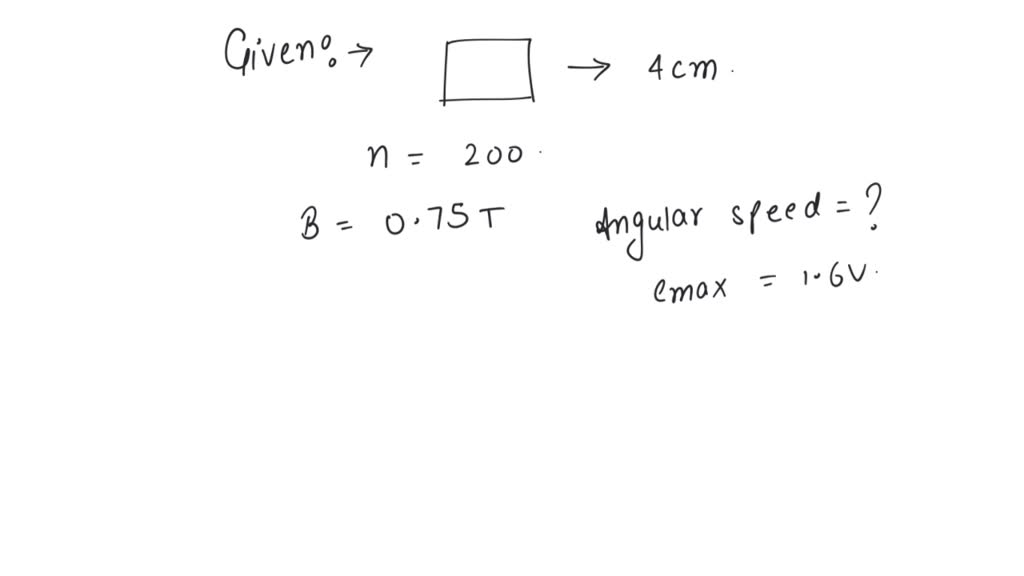 Given: → → 4cm.
n = 200.
B = 0.75 T
Angular speed = ?
emax = 1.6V.